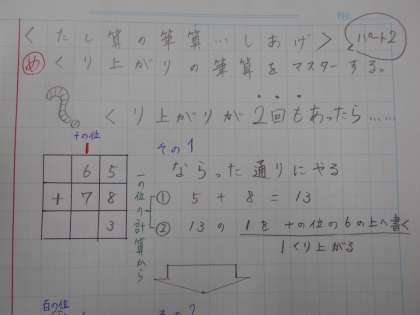 ＜たし算の筆算…しあげ＞ パート2
め くり上がりの筆算をマスターする。
くり上がりが2回もあったら……
十の位
その1
1
6 5
+ 7 8
3
ならった通りにやる
一の位の計算から
① 5 + 8 = 13
② 13の1を十の位の6の上へ書く
1くり上がる
百の位
その2